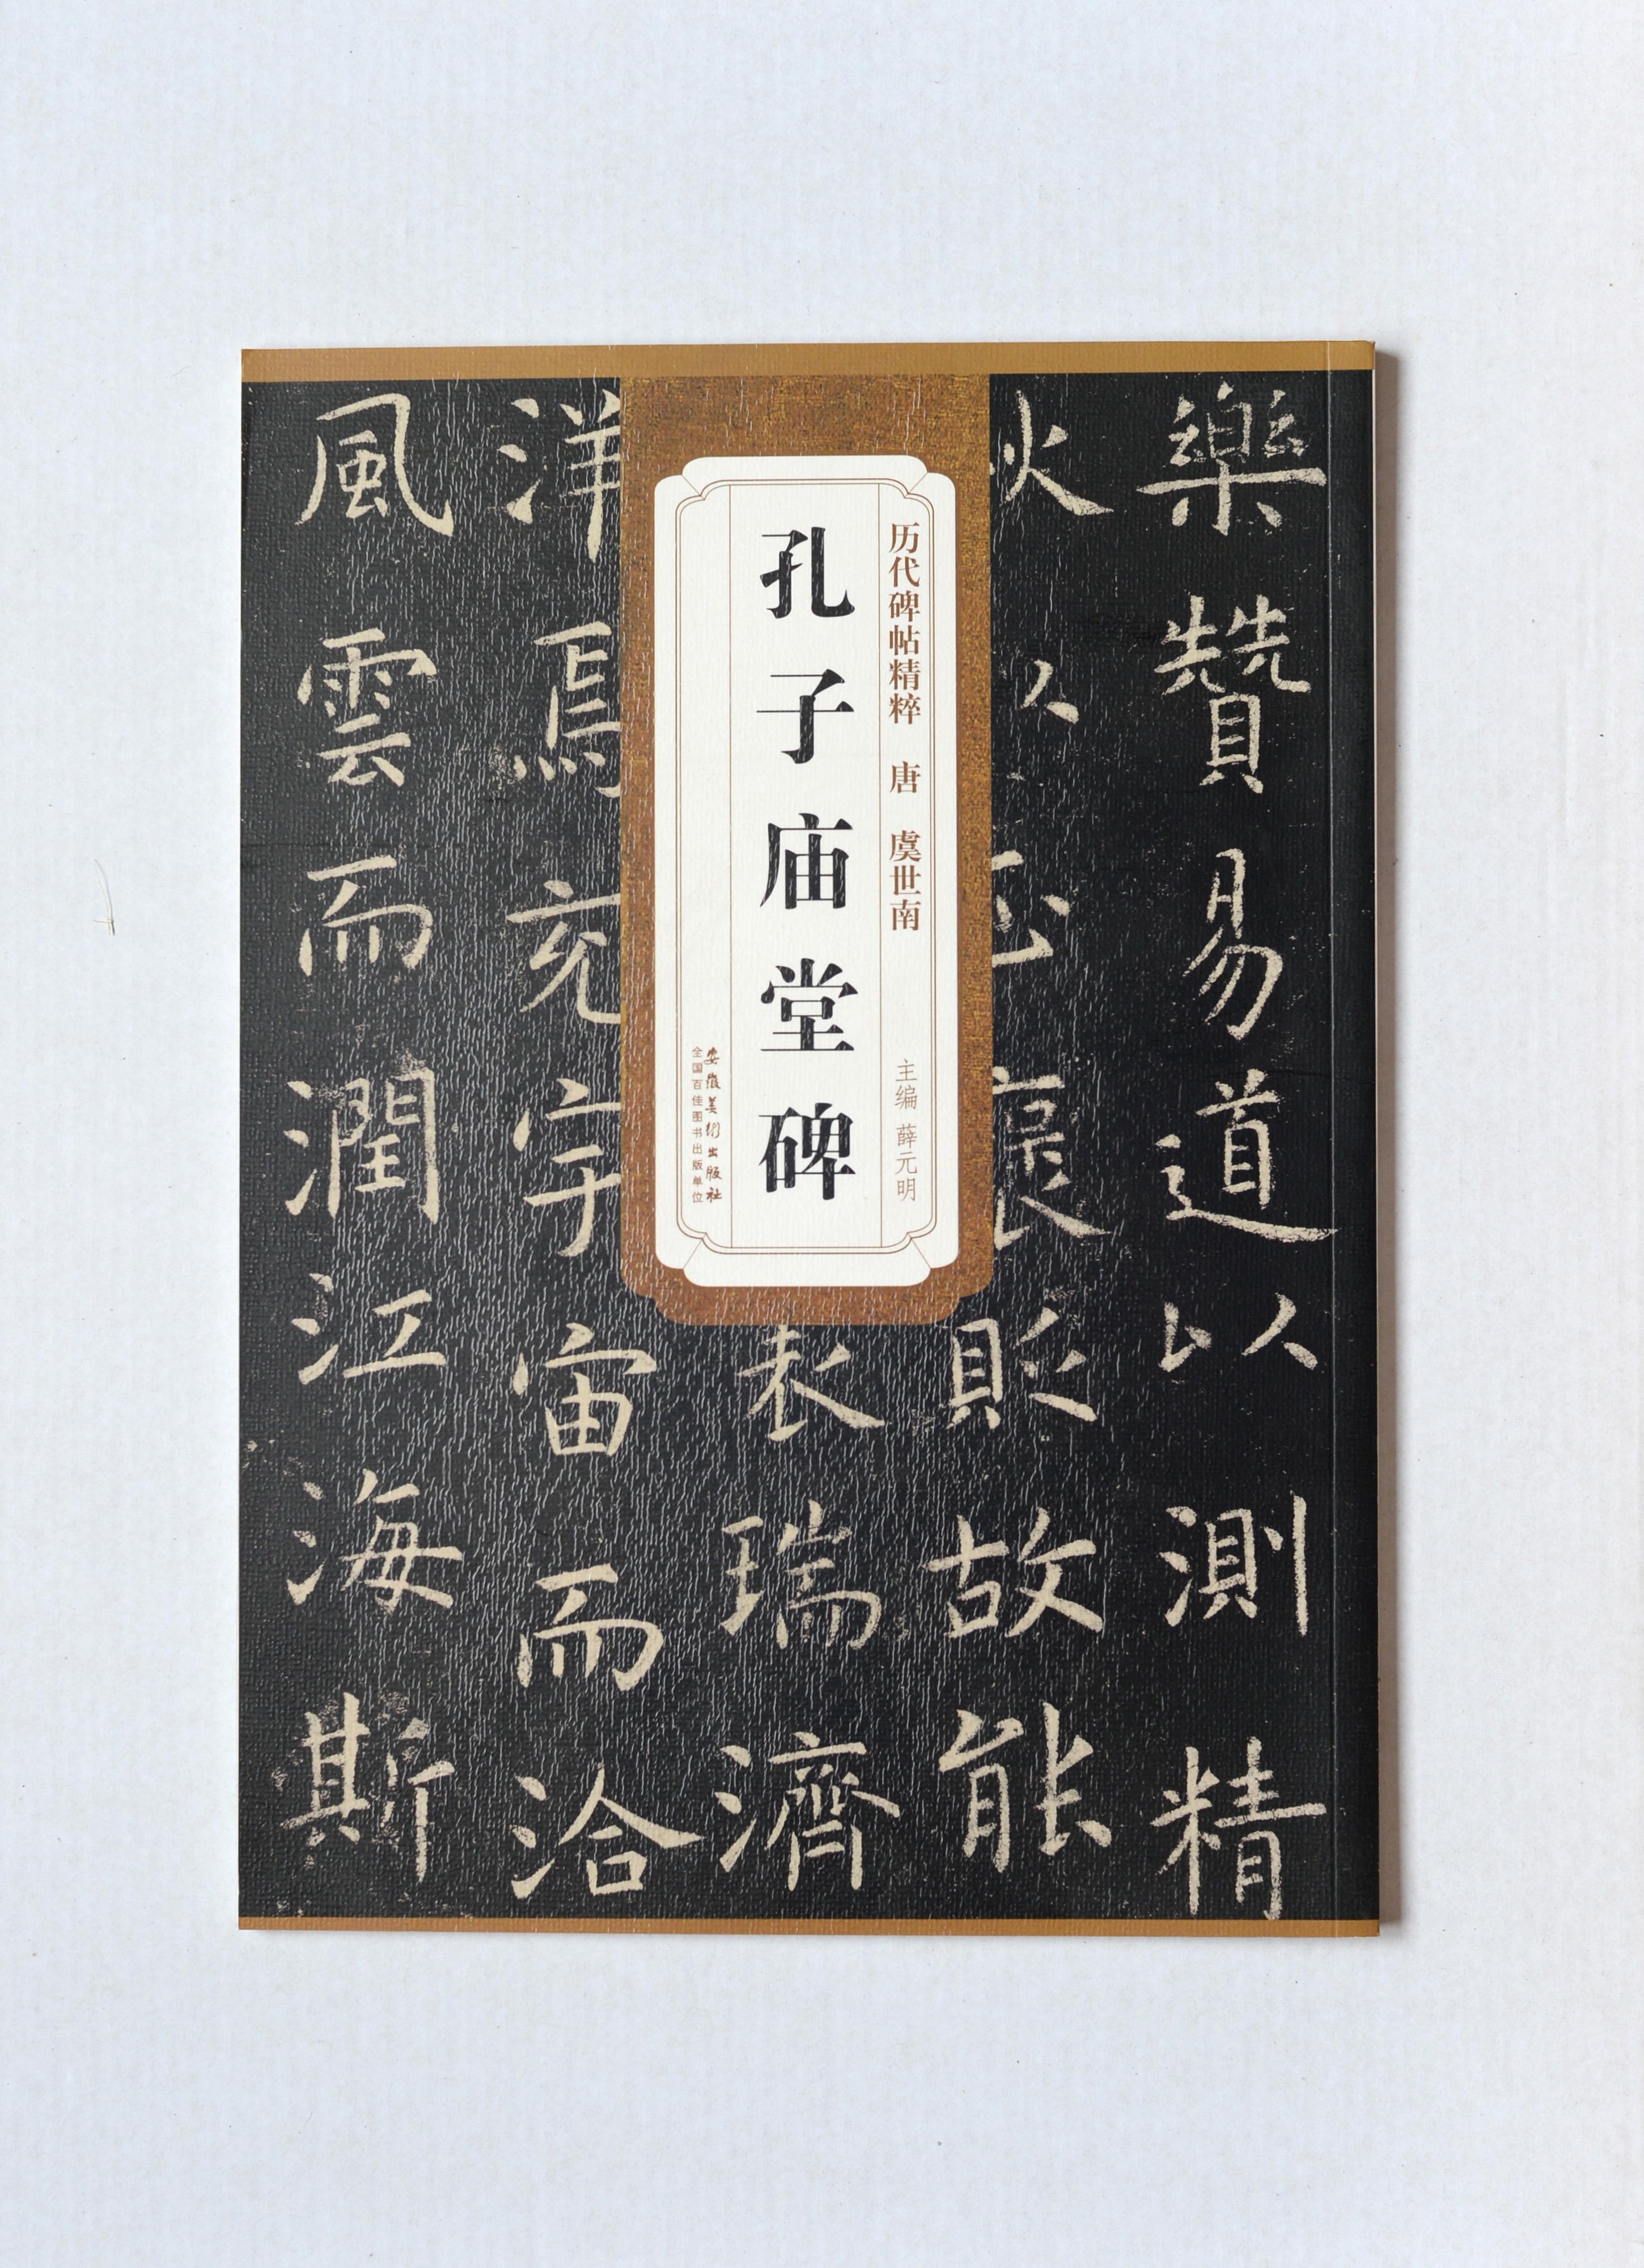 樂贊易道以測精
貶故能
历代碑帖精粹 唐 虞世南
主编 薛元明
孔子庙堂碑
安徽美術出版社
全国百佳图书出版单位
表瑞濟
洋焉充宇宙而洽
風雲而潤江海斯